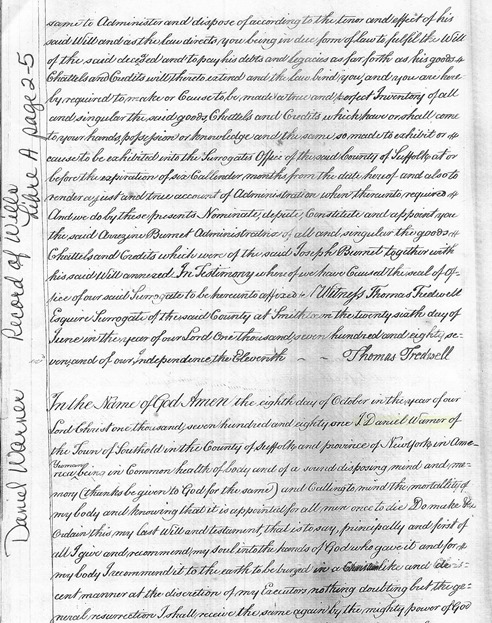 same to Administer and dispose of according to the tenor and effect of his
said Will and as the law directs, you being in due form of law to fulfil the Will
of the said deceased and to pay his debts and legacies as far forth as his goods &
Chattels and Credits will thereto extend and the law bend you, and you are here
by required to make or Cause to be made a true and perfect Inventory of all
and singular the said goods, Chattels and Credits which have or shall come
to your hands, possession or knowledge and the same so made to exhibit or
cause to be exhibited into the Surrogates Office of the said County of Suffolk at or
before the expiration of six Callender months from the date hereof and also to
render a just and true account of Administration when thereunto required
And we do by these presents Nominate, depute, Constitute and appoint you
the said Burnet Administrator of all and singular the goods &
Chattels and Credits which were of the said Joseph Burnet together with
his said Will annexed. In Testimony whereof we have Caused the seal of of-
fice of our said Surrogate to be hereunto affixed Witness Thomas Tredwell
Esquire Surrogate of the said County at Smithtown the twenty sixth day of
June in the year of our Lord One thousand seven hundred and eighty se-
ven, and of our Independence the Eleventh ~ ~ Thomas Tredwell
In the Name of God Amen the eighth day of October in the year of our
Lord Christ one thousand seven hundred and eighty one I Daniel Warner of
the Town of Southold in the County of Suffolk and province of New York in Ame-
rica being in Common health of body and of a sound disposing mind and me-
mory (thanks be given to God for the same) and Calling to mind the mortality of
my body and knowing that it is appointed for all men once to die Do make &
Ordain this my last Will and testament, that is to say, principally and first of
all I give and recommend my soul into the hands of God who gave it and for
my body I recommend it to the earth to be buried in a Christianlike and de-
cent manner at the discretion of my Executors nothing doubting but the ge-
neral resurrection I shall receive the same again by the mighty power of God
Daniel Warner Record of Wills
Libre A page 2-5